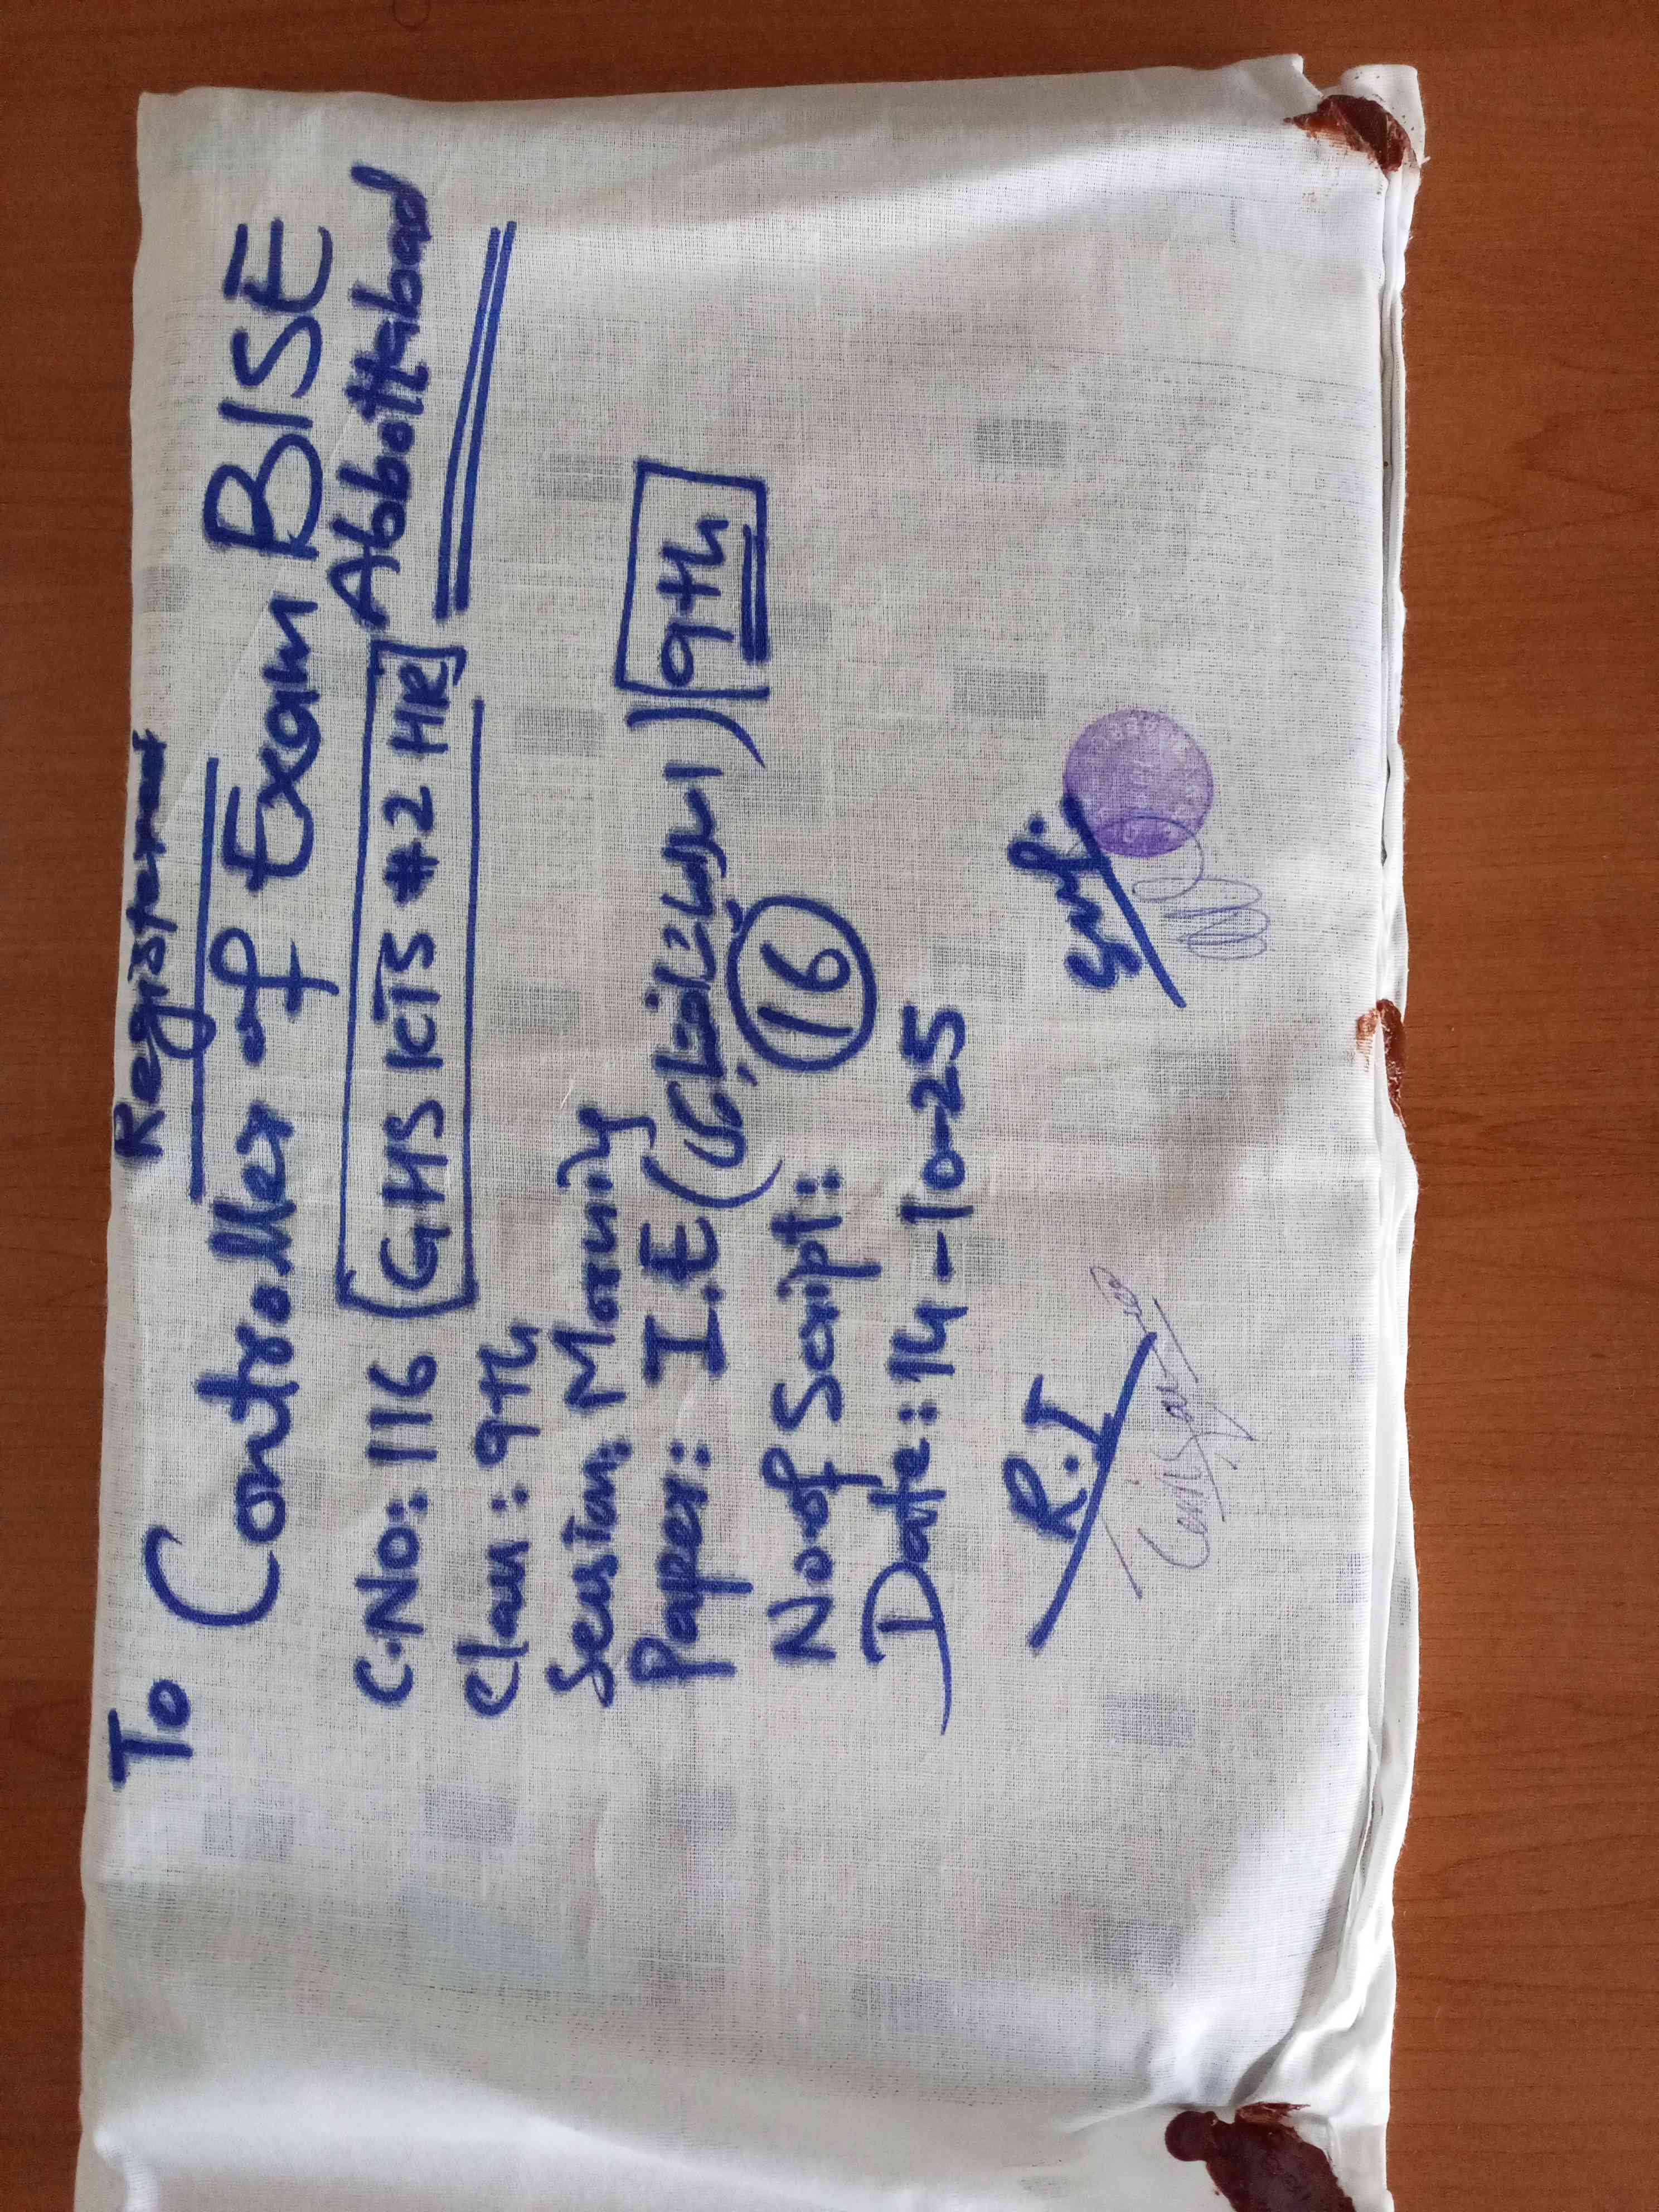 Registered
To
Controller of Exam BISE
Abbottabad
C.No: 116 (GHS KTS #2 HR)
Class: 9th
Session: Morning
Paper: I.E (اسلامیات) 9th
No of Script: 16
Date: 14-10-25
R.I